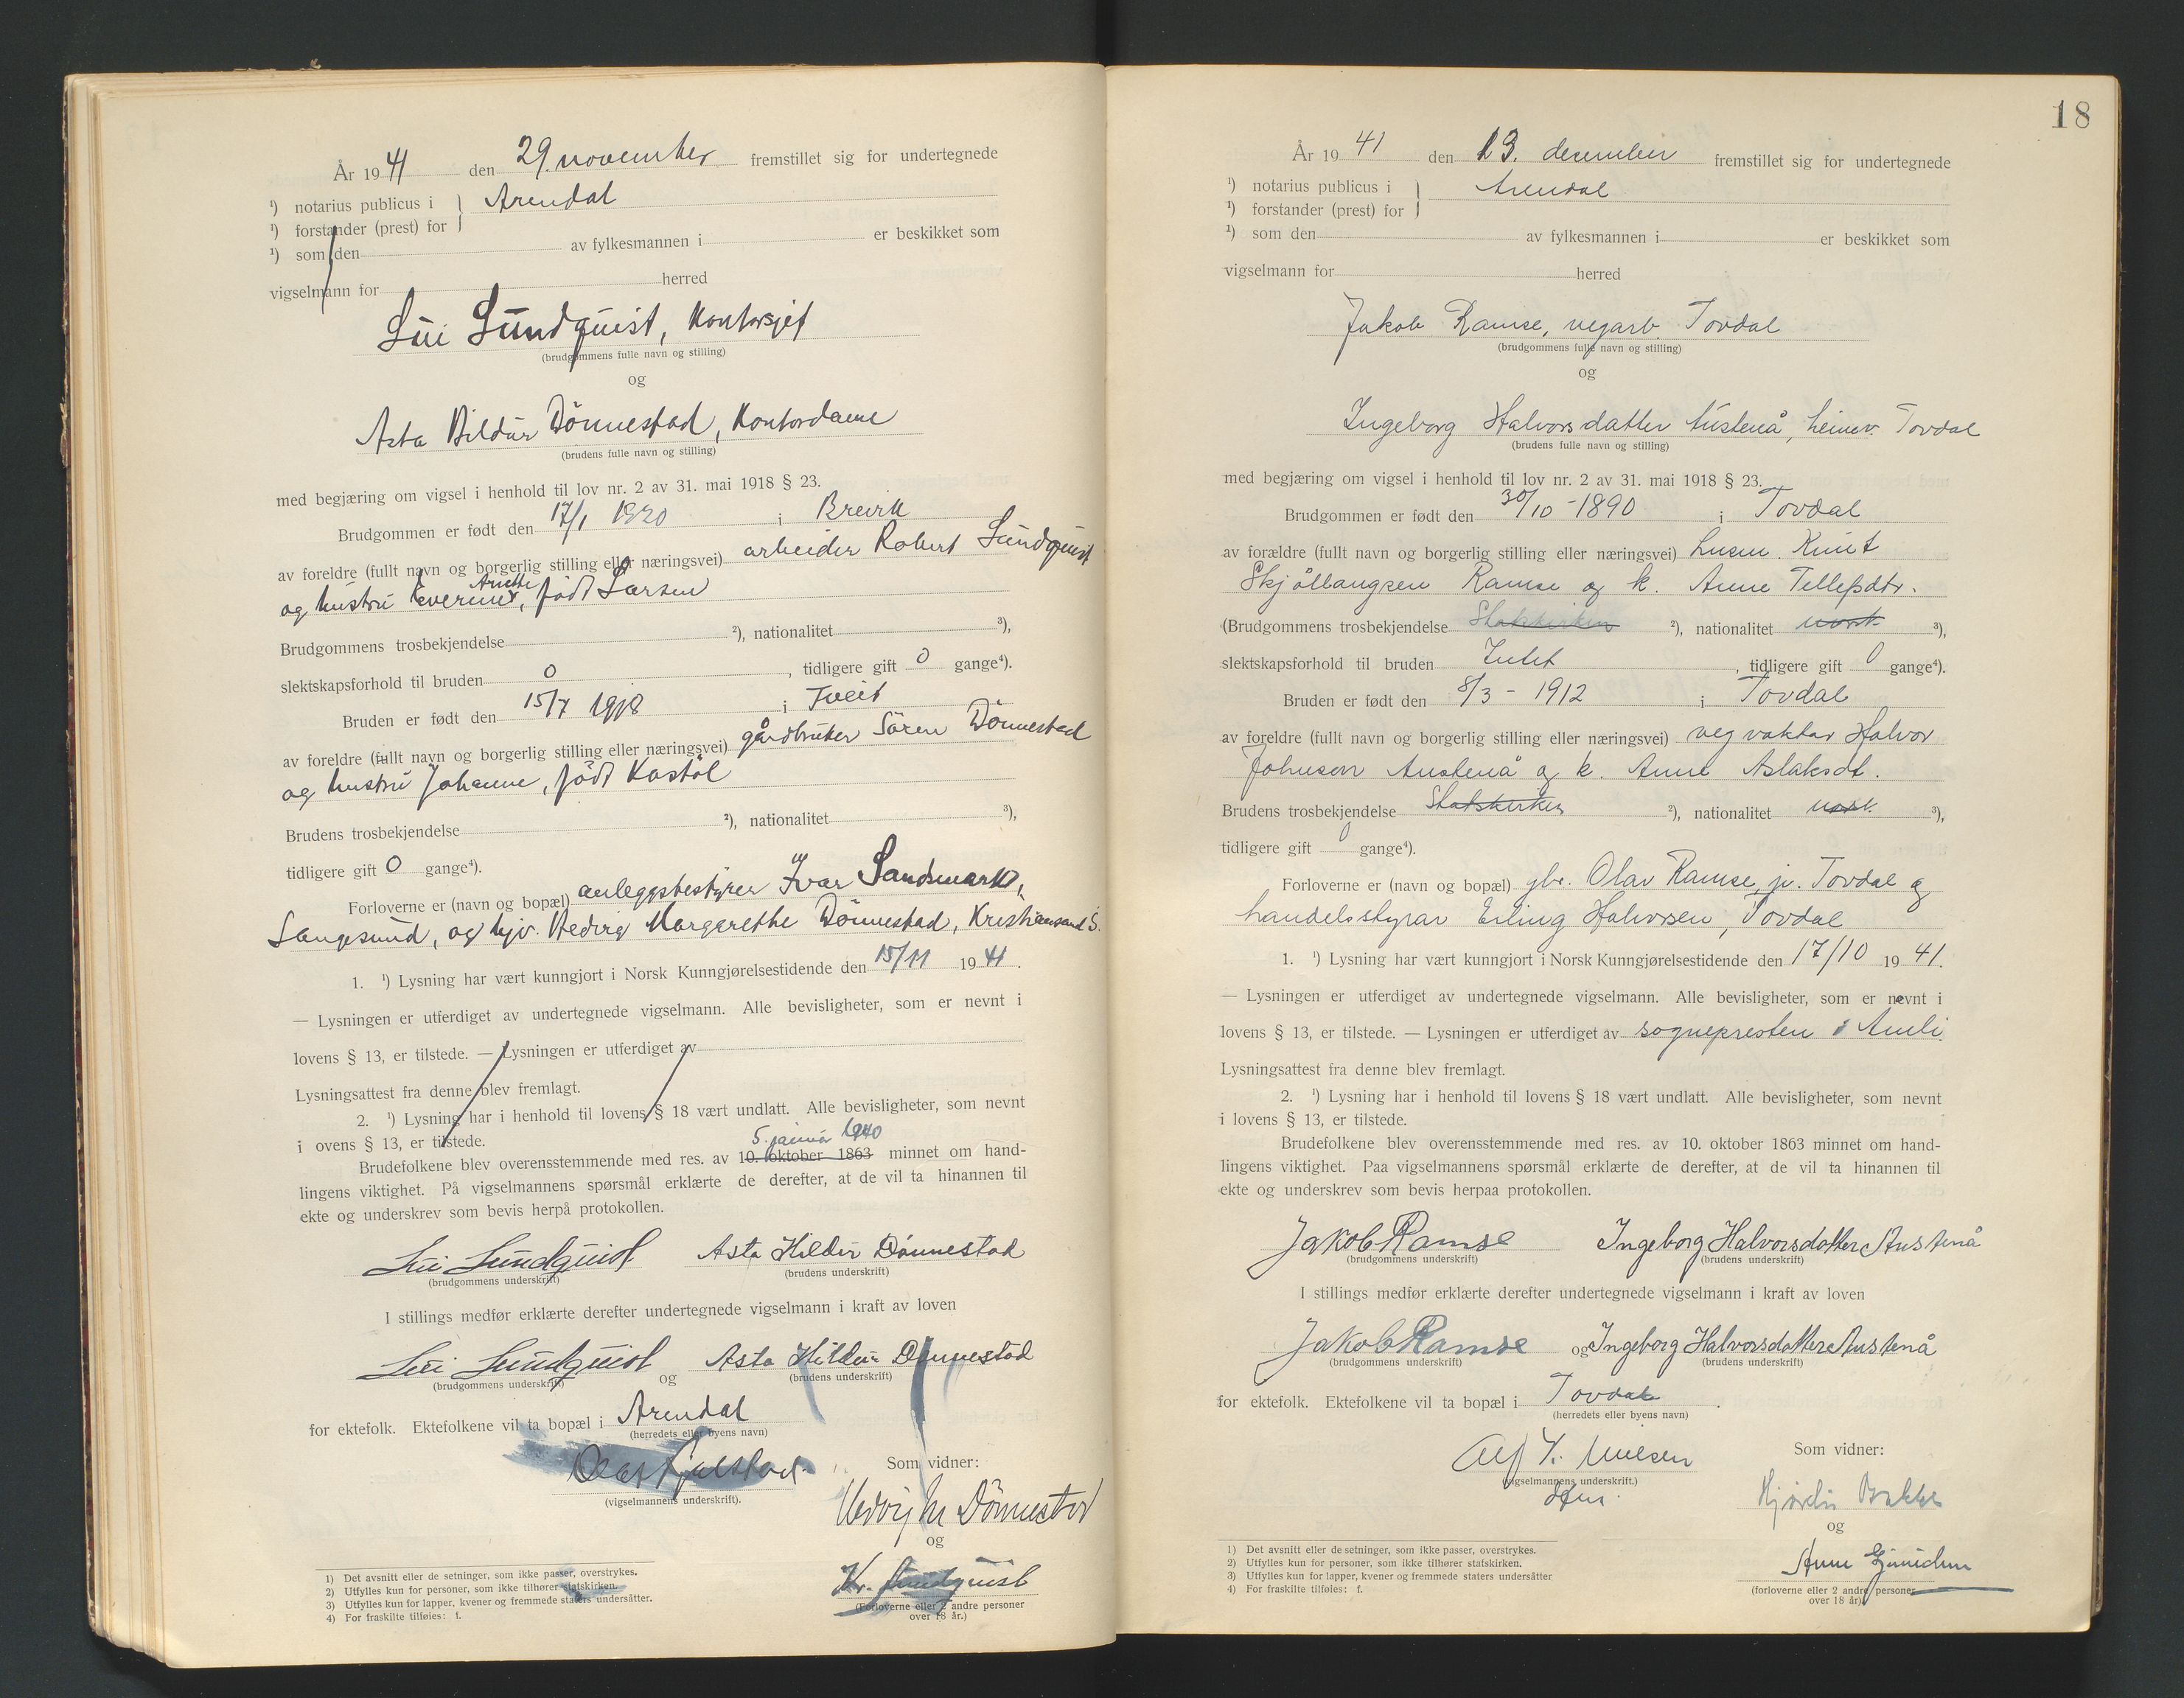 År 1941 den 29. november fremstillet sig for undertegnede
¹) notarius publicus i } Arendal
¹) forstander (prest) for
¹) som den av fylkesmannen i er beskikket som
vigselmann for herred
Sundquist, Kontorsjef
(brudgommens fulle navn og stilling)
og
Asta Hildur Dönnestad, Kontordame
(brudens fulle navn og stilling)
med begjæring om vigsel i henhold til lov nr. 2 av 31. mai 1918 § 23.
Brudgommen er født den 17/1 i Brevik
av foreldre (fullt navn og borgerlig stilling eller næringsvei) arbeider Robert Sundquist
og hustru Anette, født Larsen
Brudgommens trosbekjendelse ²), nationalitet ³),
slektskapsforhold til bruden 0, tidligere gift 0 gange⁴).
Bruden er født den 15/7 1918 i Tveit
av foreldre (fullt navn og borgerlig stilling eller næringsvei) gårdbruker Sören Dönnestad
og hustru Johanne, født Kostöl
Brudens trosbekjendelse ²), nationalitet ³),
tidligere gift 0 gange⁴).
Forloverne er (navn og bopæl) anleggsbestyrer Ivar Sandsmark,
Langesund, og hjv. Hedvig Margarethe Dönnestad, Kristiansand S.
1. ¹) Lysning har vært kunngjort i Norsk Kunngjørelsestidende den 15/11 1941.
— Lysningen er utferdiget av undertegnede vigselmann. Alle bevisligheter, som er nevnt i
lovens § 13, er tilstede. — Lysningen er utferdiget av
Lysningsattest fra denne blev fremlagt.
2. ¹) Lysning har i henhold til lovens § 18 vært undlatt. Alle bevisligheter, som nevnt
i ovens § 13, er tilstede.
5. januar 1940
Brudefolkene blev overensstemmende med res. av 10. oktober 1863 minnet om hand-
lingens viktighet. På vigselmannens spørsmål erklærte de derefter, at de vil ta hinannen til
ekte og underskrev som bevis herpå protokollen.
Sundquist Asta Hildur Dönnestad
(brudgommens underskrift) (brudens underskrift)
I stillings medfør erklærte derefter undertegnede vigselmann i kraft av loven
Sundquist og Asta Hildur Dönnestad
(brudgommens underskrift) (brudens underskrift)
for ektefolk. Ektefolkene vil ta bopæl i Arendal
(herredets eller byens navn)
(vigselmannens underskrift).
Som vidner:
Hedvig M Dönnestad
og
Kr. Sundquist
(Forloverne eller 2 andre personer
over 18 år.)
1) Det avsnitt eller de setninger, som ikke passer, overstrykes.
2) Utfylles kun for personer, som ikke tilhører statskirken.
3) Utfylles kun for lapper, kvener og fremmede staters undersåtter.
4) For fraskilte tilføies: f.
18
År 1941 den 13. december fremstillet sig for undertegnede
¹) notarius publicus i } Arendal
¹) forstander (prest) for
¹) som den av fylkesmannen i er beskikket som
vigselmann for herred
Jakob Ramse, vegarb. Tovdal
(brudgommens fulle navn og stilling)
og
Ingeborg Halvorsdatter Austenå, heimev. Tovdal
(brudens fulle navn og stilling)
med begjæring om vigsel i henhold til lov nr. 2 av 31. mai 1918 § 23.
Brudgommen er født den 30/10 - 1890 i Tovdal
av forældre (fullt navn og borgerlig stilling eller næringsvei) Knut
Ramse og k. Anne Tellefsdtr.
(Brudgommens trosbekjendelse Statskirken ²), nationalitet norsk ³),
slektskapsforhold til bruden Intet, tidligere gift 0 gange⁴).
Bruden er født den 8/3 - 1912 i Tovdal
av foreldre (fullt navn og borgerlig stilling eller næringsvei) vegvaktar Halvor
Johnsen Austenå og k. Anne Aslaksdt.
Brudens trosbekjendelse Statskirken ²), nationalitet norsk ³),
tidligere gift 0 gange⁴).
Forloverne er (navn og bopæl) gbr. Olav Ramse, jr. Tovdal og
handelsstyrar Erling Halvorsen, Tovdal
1. ¹) Lysning har vært kunngjort i Norsk Kunngjørelsestidende den 17/10 1941.
— Lysningen er utferdiget av undertegnede vigselmann. Alle bevisligheter, som er nevnt i
lovens § 13, er tilstede. — Lysningen er utferdiget av sognepresten i Åmli
Lysningsattest fra denne blev fremlagt.
2. ¹) Lysning har i henhold til lovens § 18 vært undlatt. Alle bevisligheter, som nevnt
i lovens § 13, er tilstede.
Brudefolkene blev overensstemmende med res. av 10. oktober 1863 minnet om hand-
lingens viktighet. Paa vigselmannens spørsmål erklærte de derefter, at de vil ta hinannen til
ekte og underskrev som bevis herpaa protokollen.
Jakob Ramse Ingeborg Halvorsdatter Austenå
(brudgommens underskrift) (brudens underskrift)
I stillings medfør erklærte derefter undertegnede vigselmann i kraft av loven
Jakob Ramse og Ingeborg Halvorsdatter Austenå
(brudgommens underskrift) (brudens underskrift)
for ektefolk. Ektefolkene vil ta bopæl i Tovdal.
(herredets eller byens navn)
Nielsen
(vigselmannens underskrift.)
Som vidner:
Hjørdis Bakke
og
Anne
(forloverne eller 2 andre personer
over 18 år)
1) Det avsnitt eller de setninger, som ikke passer, overstrykes.
2) Utfylles kun for personer, som ikke tilhører statskirken.
3) Utfylles kun for lapper, kvener og fremmede staters undersåtter
4) For fraskilte tilføies: f.